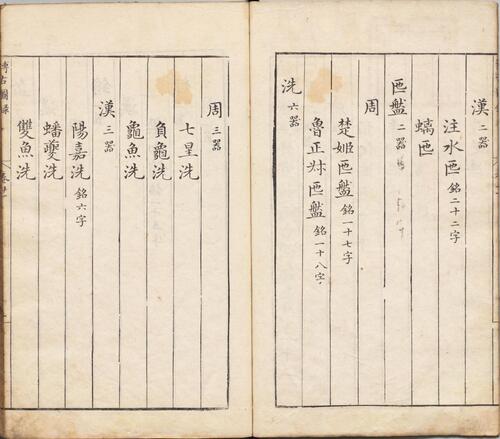 漢二器
注水匜銘二十二字
螭匜
匜盤二器
周
楚姬匜盤銘一十七字
魯正叔匜盤銘一十八字
洗六器
周三器
七星洗
負龜洗
龜魚洗
漢三器
陽嘉洗銘六字
蟠夔洗
雙魚洗
博古圖錄